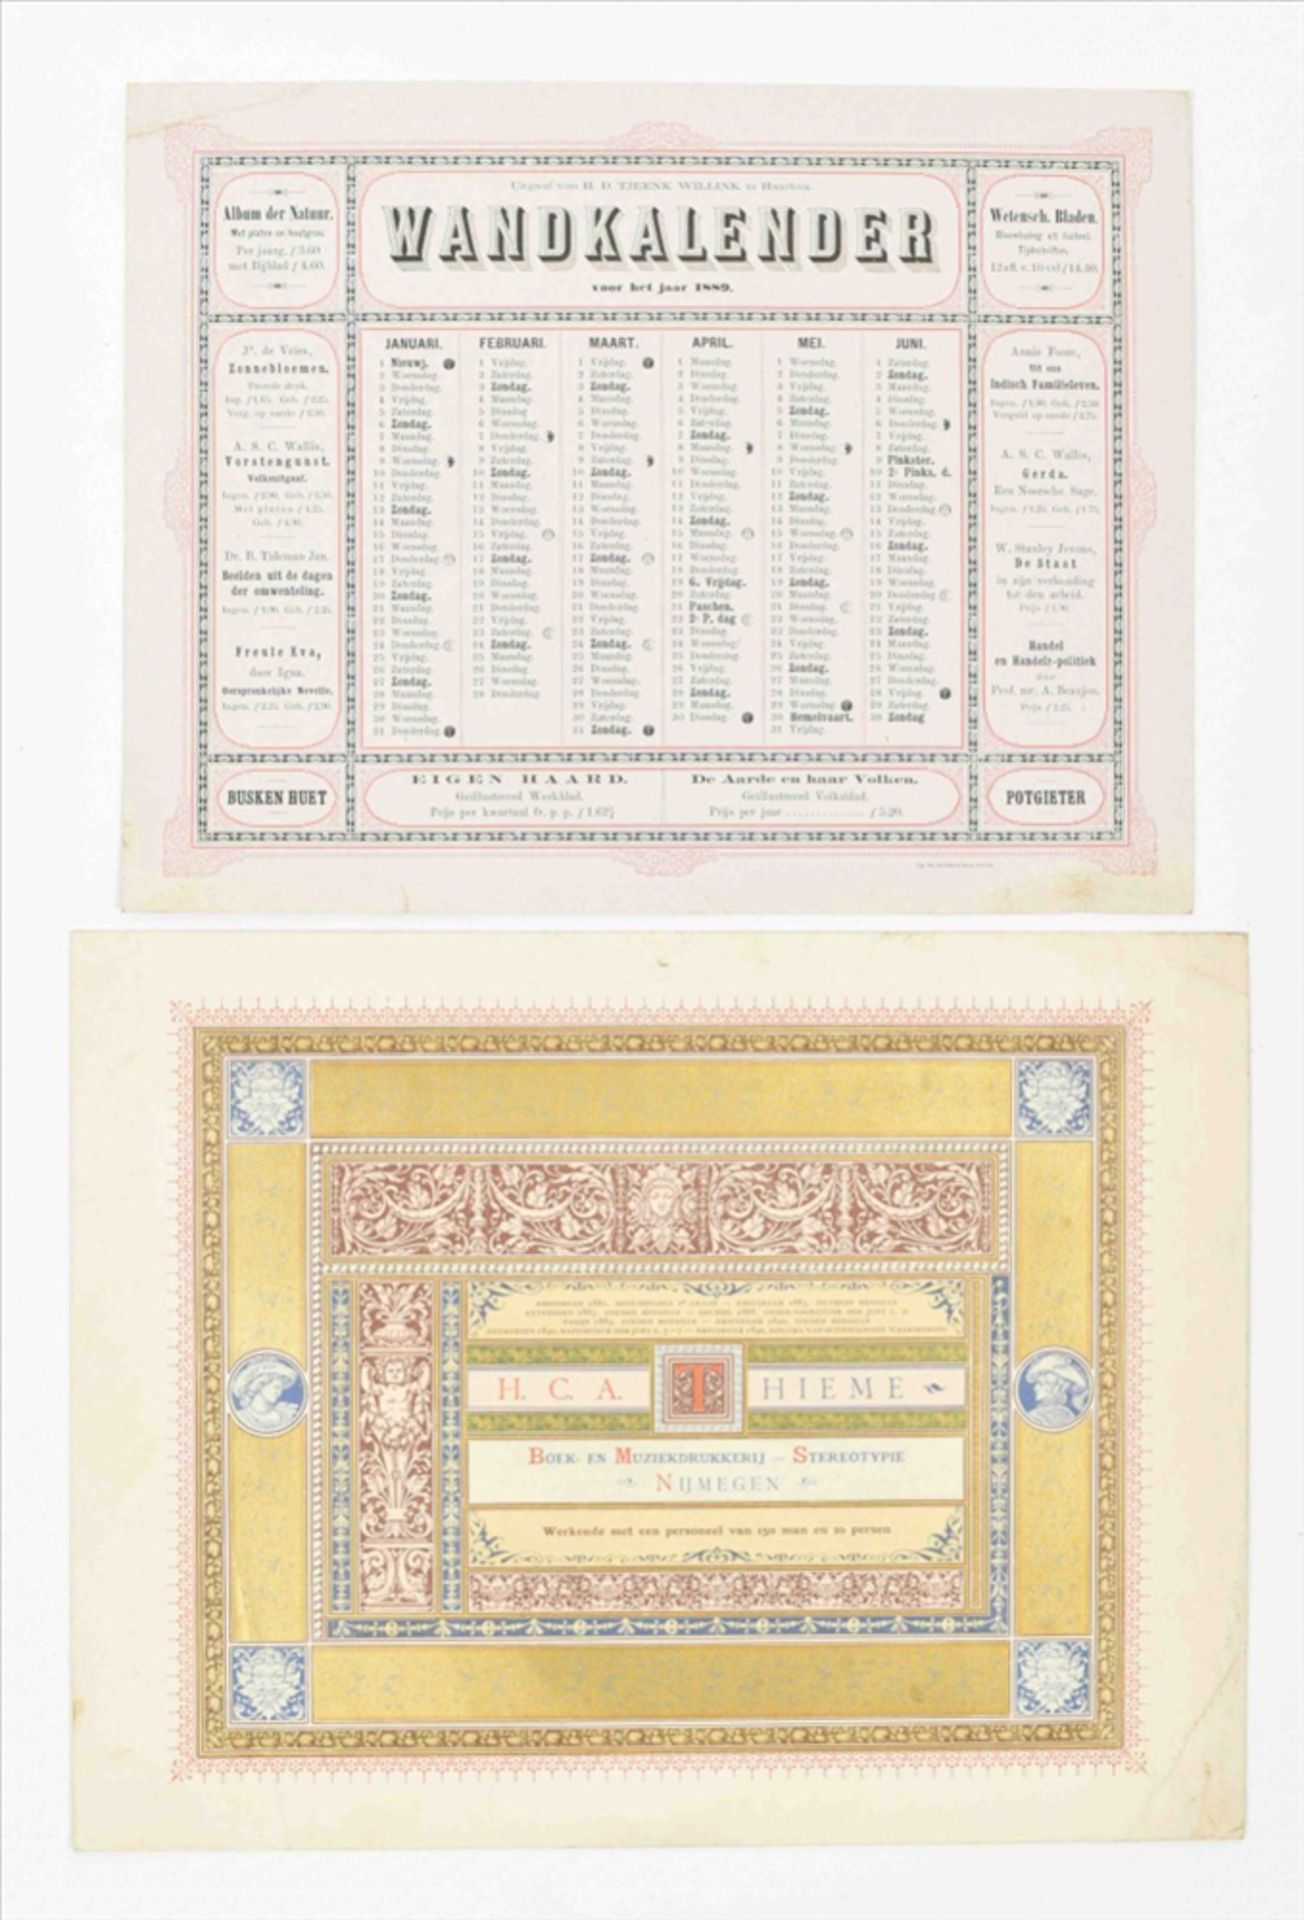 Uitgaaf van H. D. TJEENK WILLINK te Haarlem.
WANDKALENDER
voor het jaar 1889.
Album der Natuur.
Met platen en houtgrav.
Per jaarg. f 3.60
met Bijblad f 4.60.
Wetensch. Bladen.
Bloemlezing uit buitenl.
Tijdschriften.
12 afl. v. 10 vel f
Js. de Vries,
Zonnebloemen.
Tweede druk.
Ing. f 1.65. Geb. f 2.25.
Verg. op snede f 2.50.
A. S. C. Wallis,
Vorstengunst.
Volksuitgaaf.
Ingen. f 2.90. Geb. f 3.50.
Met platen f 4.25.
Geb. f 4.90.
Dr. B. Tideman Jzn.
Beelden uit de dagen
der omwenteling.
Ingen. f 1.90. Geb. f 2.25.
Freule Eva,
door Igna.
Oorspronkelijke Novelle.
Ingen. f 2.25. Geb. f 2.90.
JANUARI.
1 Nieuwj.
2 Woensdag.
3 Donderdag.
4 Vrijdag.
5 Zaterdag.
6 Zondag.
7 Maandag.
8 Dinsdag.
9 Woensdag.
10 Donderdag.
11 Vrijdag.
12 Zaterdag.
13 Zondag.
14 Maandag.
15 Dinsdag.
16 Woensdag.
17 Donderdag.
18 Vrijdag.
19 Zaterdag.
20 Zondag.
21 Maandag.
22 Dinsdag.
23 Woensdag.
24 Donderdag.
25 Vrijdag.
26 Zaterdag.
27 Zondag.
28 Maandag.
29 Dinsdag.
30 Woensdag.
31 Donderdag.
FEBRUARI.
1 Vrijdag.
2 Zaterdag.
3 Zondag.
4 Maandag.
5 Dinsdag.
6 Woensdag.
7 Donderdag.
8 Vrijdag.
9 Zaterdag.
10 Zondag.
11 Maandag.
12 Dinsdag.
13 Woensdag.
14 Donderdag.
15 Vrijdag.
16 Zaterdag.
17 Zondag.
18 Maandag.
19 Dinsdag.
20 Woensdag.
21 Donderdag.
22 Vrijdag.
23 Zaterdag.
24 Zondag.
25 Maandag.
26 Dinsdag.
27 Woensdag.
28 Donderdag.
MAART.
1 Vrijdag.
2 Zaterdag.
3 Zondag.
4 Maandag.
5 Dinsdag.
6 Woensdag.
7 Donderdag.
8 Vrijdag.
9 Zaterdag.
10 Zondag.
11 Maandag.
12 Dinsdag.
13 Woensdag.
14 Donderdag.
15 Vrijdag.
16 Zaterdag.
17 Zondag.
18 Maandag.
19 Dinsdag.
20 Woensdag.
21 Donderdag.
22 Vrijdag.
23 Zaterdag.
24 Zondag.
25 Maandag.
26 Dinsdag.
27 Woensdag.
28 Donderdag.
29 Vrijdag.
30 Zaterdag.
31 Zondag.
APRIL.
1 Maandag.
2 Dinsdag.
3 Woensdag.
4 Donderdag.
5 Vrijdag.
6 Zaterdag.
7 Zondag.
8 Maandag.
9 Dinsdag.
10 Woensdag.
11 Donderdag.
12 Vrijdag.
13 Zaterdag.
14 Zondag.
15 Maandag.
16 Dinsdag.
17 Woensdag.
18 Donderdag.
19 G. Vrijdag.
20 Zaterdag.
21 Paschen.
22 2e P. dag
23 Dinsdag.
24 Woensdag.
25 Donderdag.
26 Vrijdag.
27 Zaterdag.
28 Zondag.
29 Maandag.
30 Dinsdag.
MEI.
1 Woensdag.
2 Donderdag.
3 Vrijdag.
4 Zaterdag.
5 Zondag.
6 Maandag.
7 Dinsdag.
8 Woensdag.
9 Donderdag.
10 Vrijdag.
11 Zaterdag.
12 Zondag.
13 Maandag.
14 Dinsdag.
15 Woensdag.
16 Donderdag.
17 Vrijdag.
18 Zaterdag.
19 Zondag.
20 Maandag.
21 Dinsdag.
22 Woensdag.
23 Donderdag.
24 Vrijdag.
25 Zaterdag.
26 Zondag.
27 Maandag.
28 Dinsdag.
29 Woensdag.
30 Hemelvaart.
31 Vrijdag.
JUNI.
1 Zaterdag.
2 Zondag.
3 Maandag.
4 Dinsdag.
5 Woensdag.
6 Donderdag.
7 Vrijdag.
8 Zaterdag.
9 Pinkster.
10 2e Pinks. d.
11 Dinsdag.
12 Woensdag.
13 Donderdag.
14 Vrijdag.
15 Zaterdag.
16 Zondag.
17 Maandag.
18 Dinsdag.
19 Woensdag.
20 Donderdag.
21 Vrijdag.
22 Zaterdag.
23 Zondag.
24 Maandag.
25 Dinsdag.
26 Woensdag.
27 Donderdag.
28 Vrijdag.
29 Zaterdag.
30 Zondag
Annie Foore,
Uit ons
Indisch Familieleven.
Ingen. f 1.90. Geb. f 2.50.
Verguld op snede f 2.75.
A. S. C. Wallis,
Gerda.
Een Noorsche Sage.
Ingen. f 1.25. Geb. f 1.75.
W. Stanley Jevons,
De Staat
in zijn verhouding
tot den arbeid.
Prijs f 1.90.
Handel
en Handels-politiek
door
Prof. mr. A. Beaujon.
Prijs f 2.25.
BUSKEN HUET
EIGEN HAARD.
Geïllustreerd Weekblad.
Prijs per kwartaal fr. p. p. f 1.62½
De Aarde en haar Volken.
Geïllustreerd Volksblad.
Prijs per jaar ............ f 5.20.
POTGIETER
H. C. A. THIEME
BOEK- EN MUZIEKDRUKKERIJ — STEREOTYPIE
NIJMEGEN
Werkende met een personeel van 150 man en 10 persen